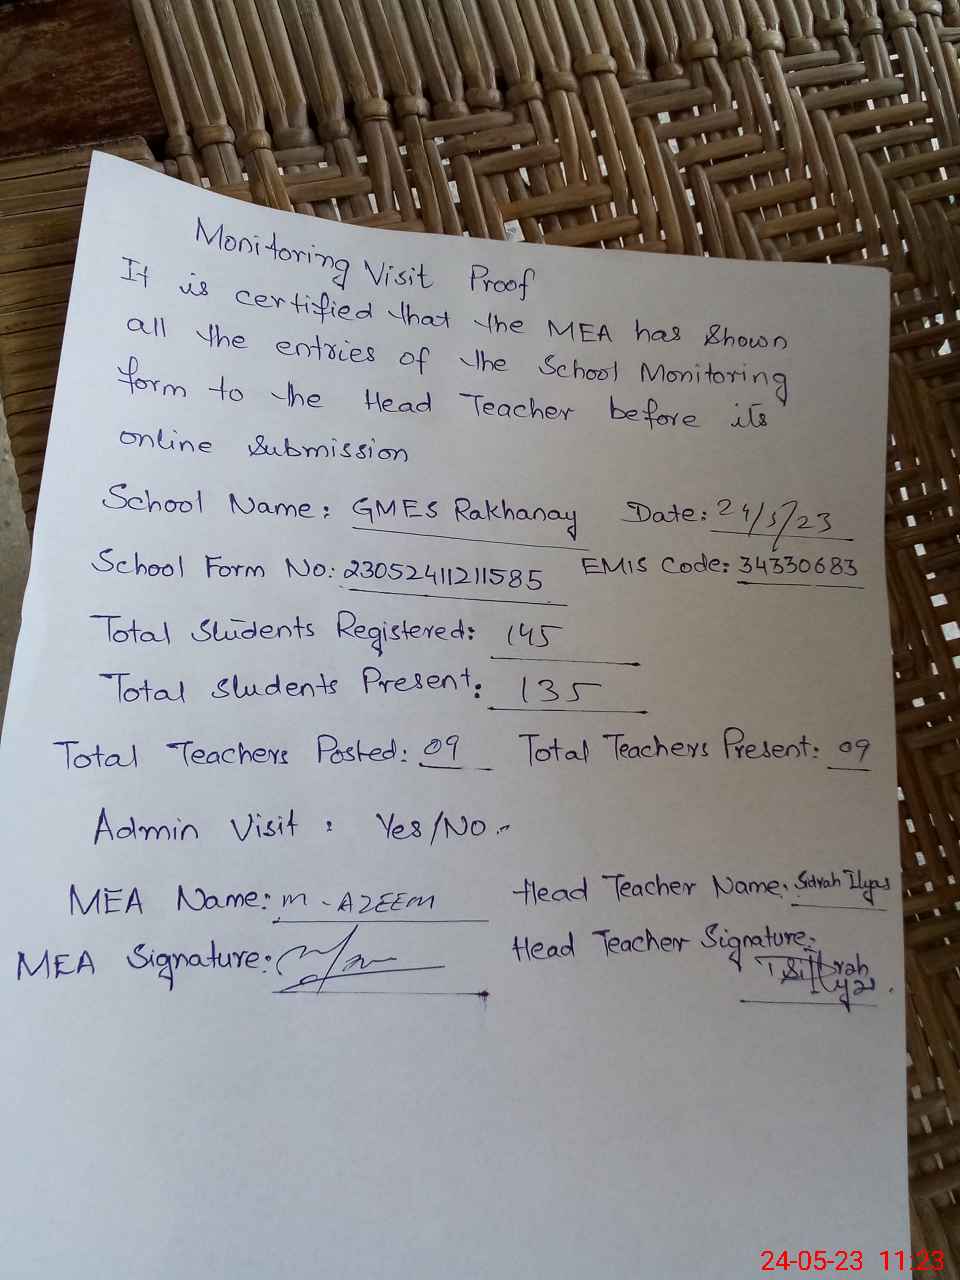 Monitoring Visit Proof
It is certified that the MEA has shown
all the entries of the School Monitoring
form to the Head Teacher before its
online submission
School Name: GMES Rakhanay Date: 24/5/23
School Form No: 23052411211585 EMIS Code: 34330683
Total Students Registered: 145
Total students Present: 135
Total Teachers Posted: 09 Total Teachers Present: 09
Admin Visit: Yes/No.
MEA Name: M-AZEEM Head Teacher Name: Sidrah Ilyas
MEA Signature: Head Teacher Signature:
Sidrah
Ilyas
24-05-23 11:23